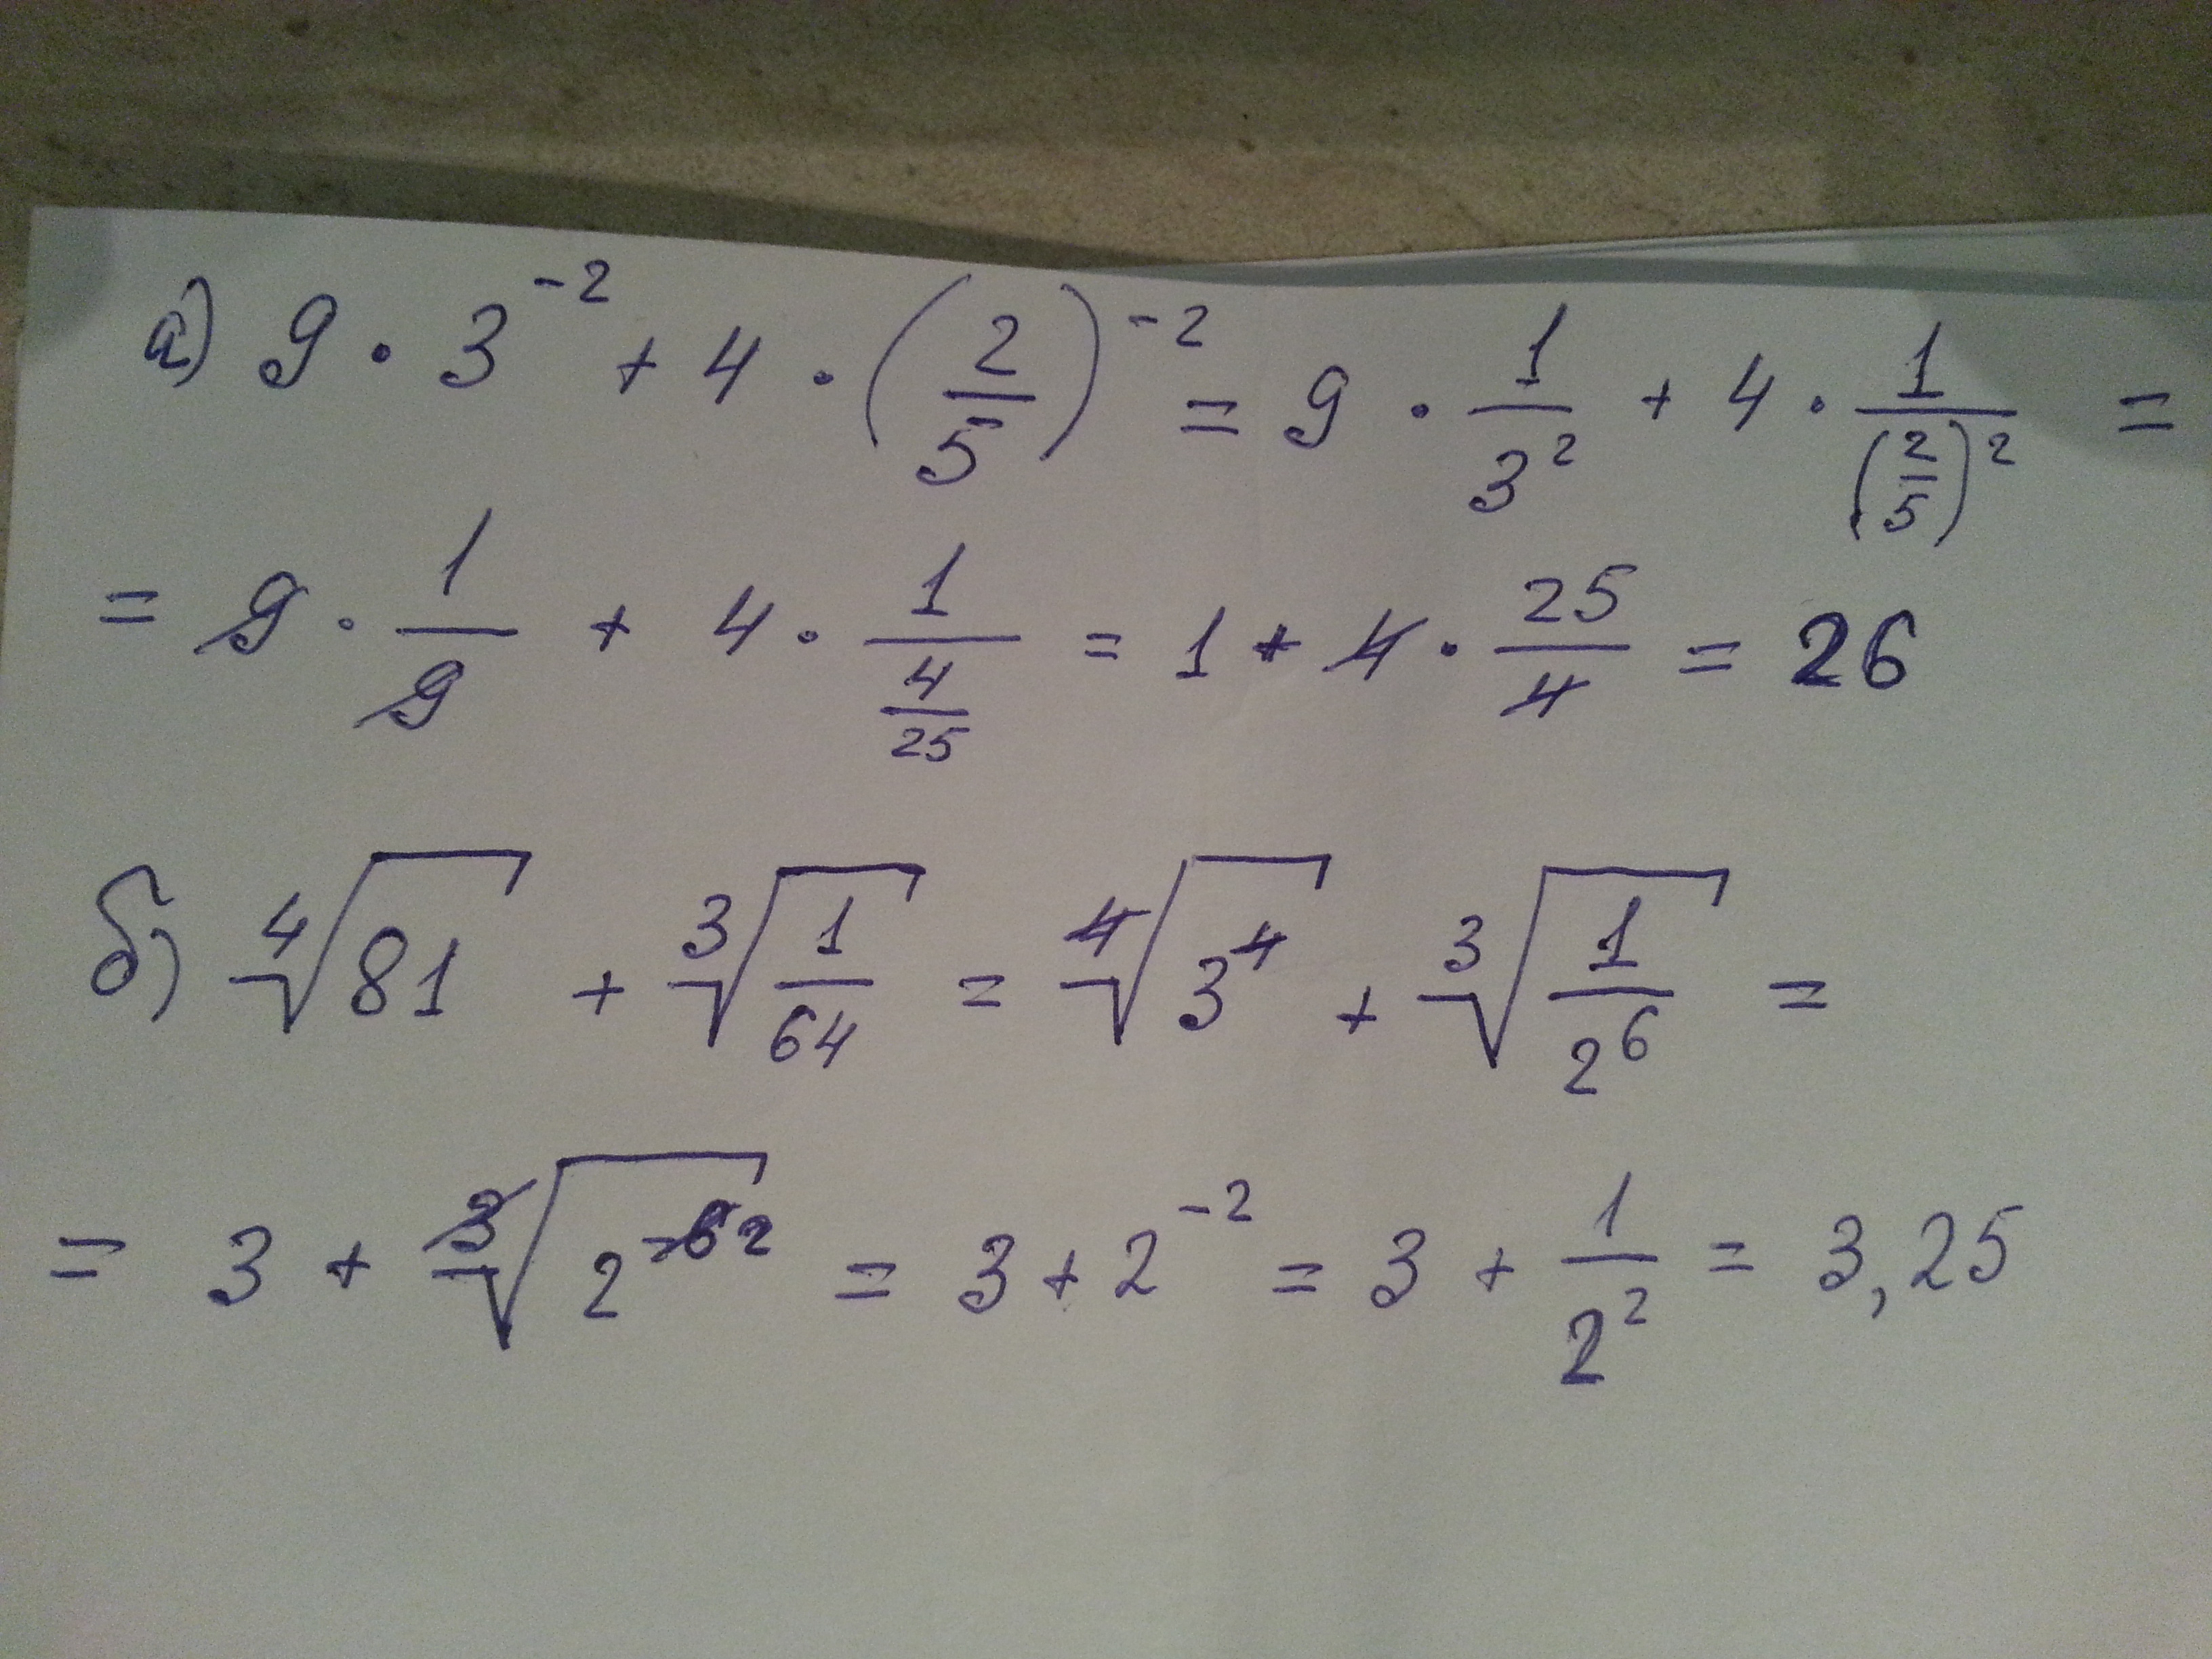 а) 9 · 3⁻² + 4 · (2/5)⁻² = 9 · 1/3² + 4 · 1/(2/5)² =
= 9 · 1/9 + 4 · 1/(4/25) = 1 + 4 · 25/4 = 26
б) ⁴√81 + ³√(1/64) = ⁴√(3⁴) + ³√(1/2⁶) =
= 3 + ³√(2⁻⁶ ²) = 3 + 2⁻² = 3 + 1/2² = 3,25